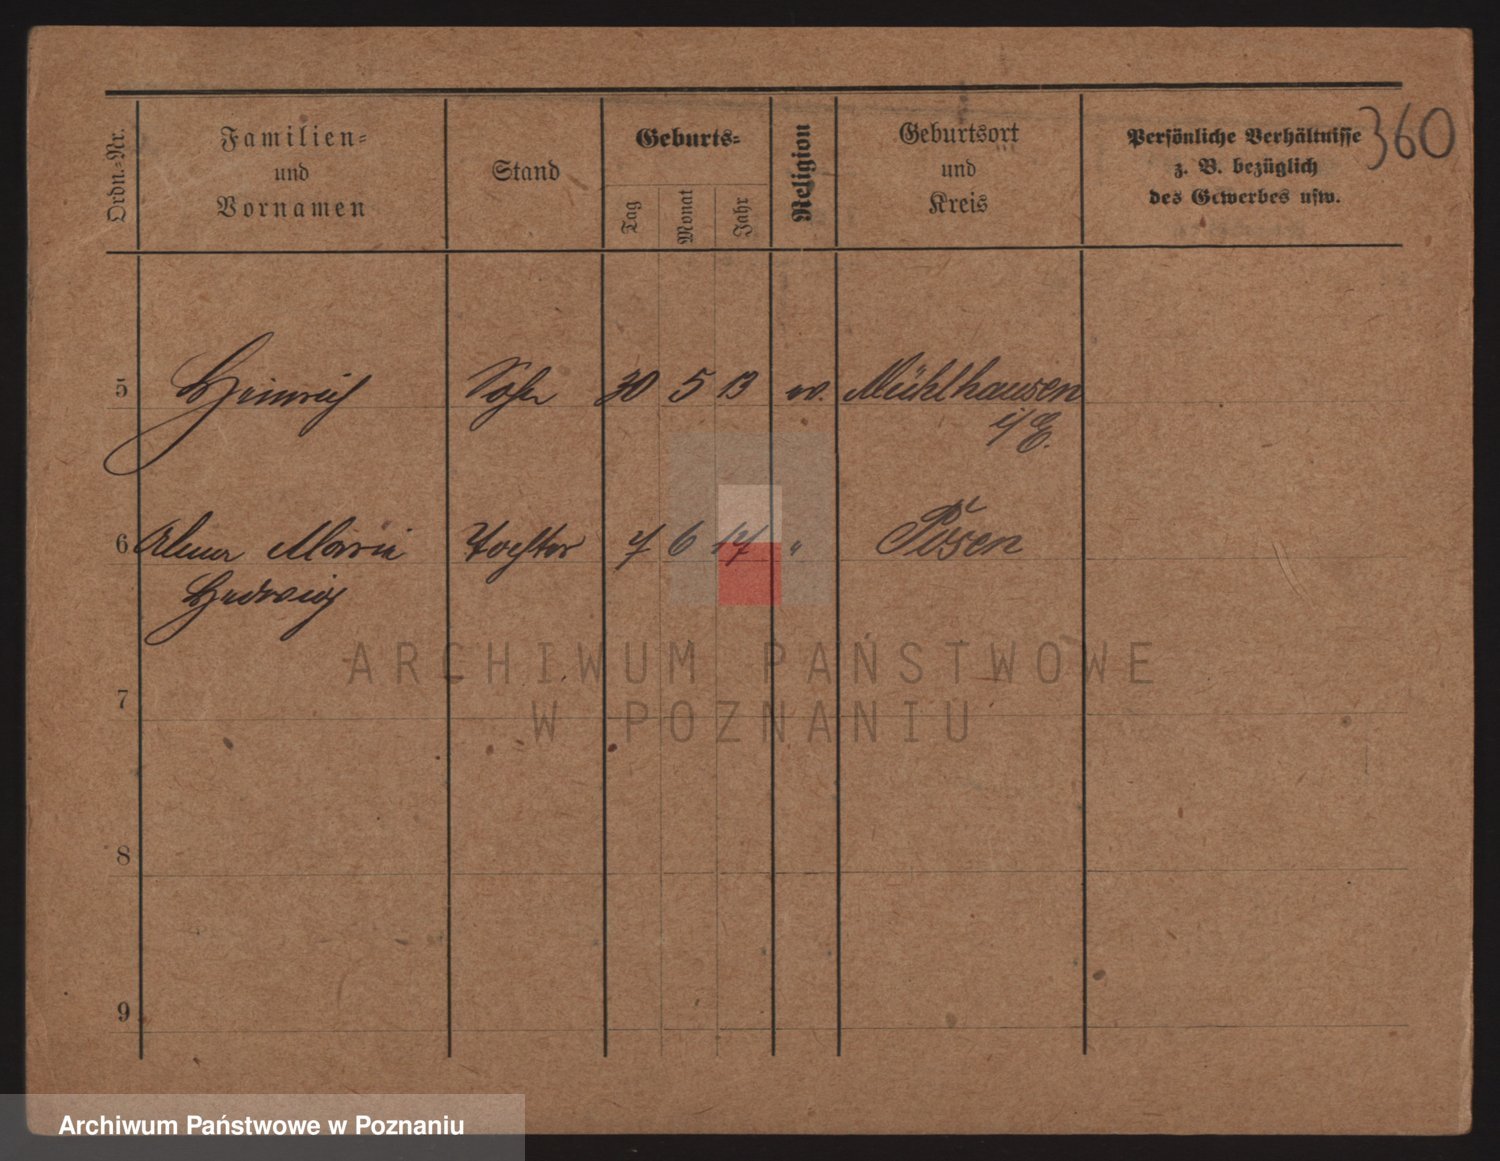 360
Ordn.-Nr.
Familien-
und
Vornamen
Stand
Geburts-
Tag
Monat
Jahr
Religion
Geburtsort
und
Kreis
Persönliche Verhältnisse
z. B. bezüglich
des Gewerbes usw.
5 Heinrich Sohn 30 5 13 ev. Mühlhausen
i/E.
6 Maria Tochter 7 6 17 " Posen
Hedwig
7
8
9
ARCHIWUM PAŃSTWOWE
W POZNANIU
Archiwum Państwowe w Poznaniu